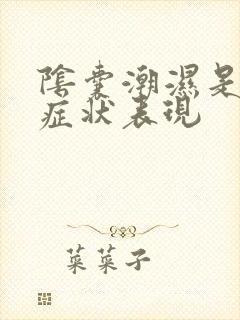 陰囊潮濕是
症状表現
菜菜子